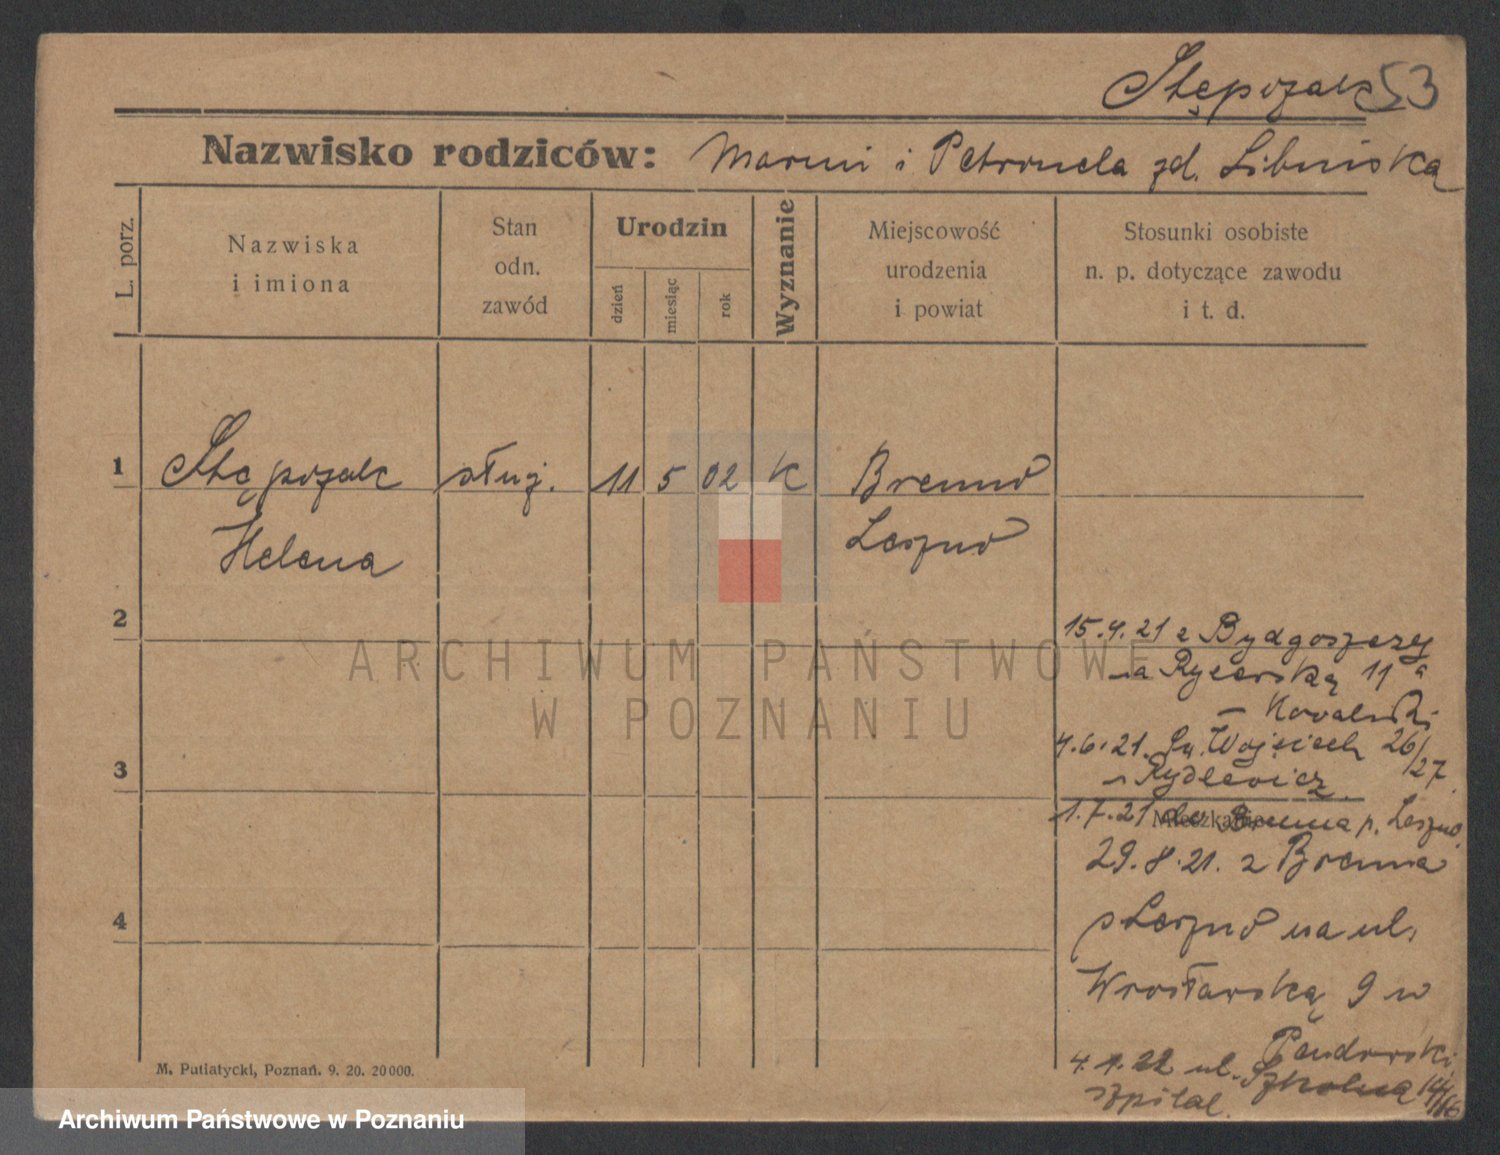 53
Nazwisko rodziców: i Petronela zd.
L. porz.
Nazwiska
i imiona
Stan
odn.
zawód
Urodzin
dzień
miesiąc
rok
Wyznanie
Miejscowość
urodzenia
i powiat
Stosunki osobiste
n. p. dotyczące zawodu
i t. d.
1 służ. 11 5 02 K Brenno
Helena Leszno
2
15.4.21 z Bydgoszczy
na Rycerską 11a
3
4.6.21. Św. Wojciech 26/27
Mieszkanie
1.7.21 do Brenna p. Leszno
29.8.21. z Brenna
4
p Leszno na ul.
Wrocławską 9 w
4. 22 ul. Szkolna
szpital.
M. Putiatycki, Poznań. 9. 20. 20000.
ARCHIWUM PAŃSTWOWE
W POZNANIU
Archiwum Państwowe w Poznaniu